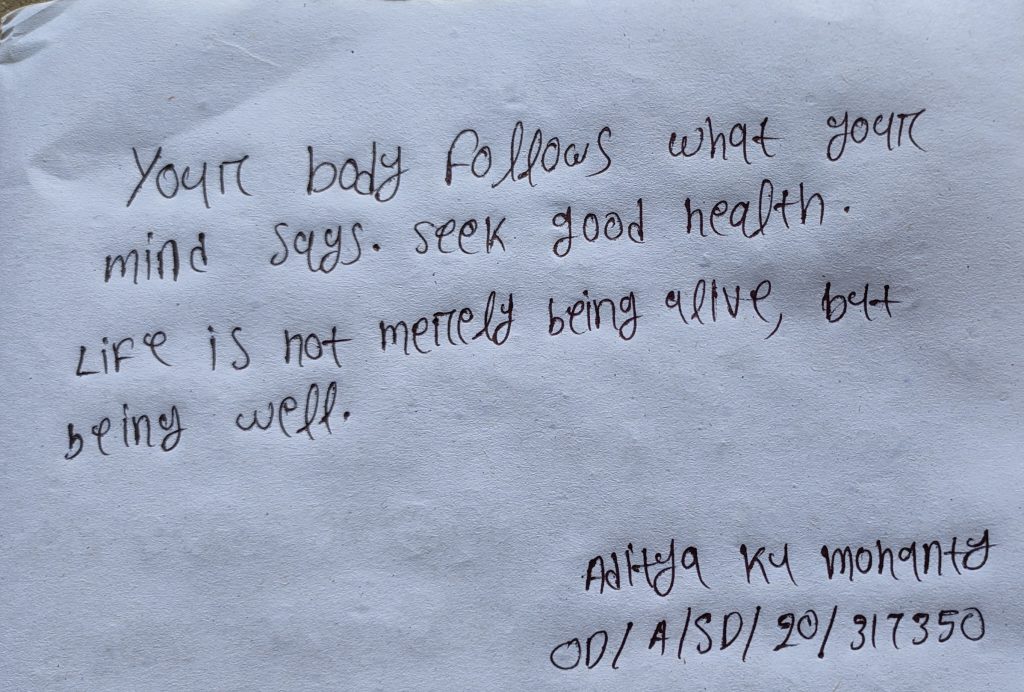 Your body follows what your
mind says. seek good health.
Life is not merely being alive, but
being well.
Aditya Ku Mohanty
OD/A/SD/20/317350